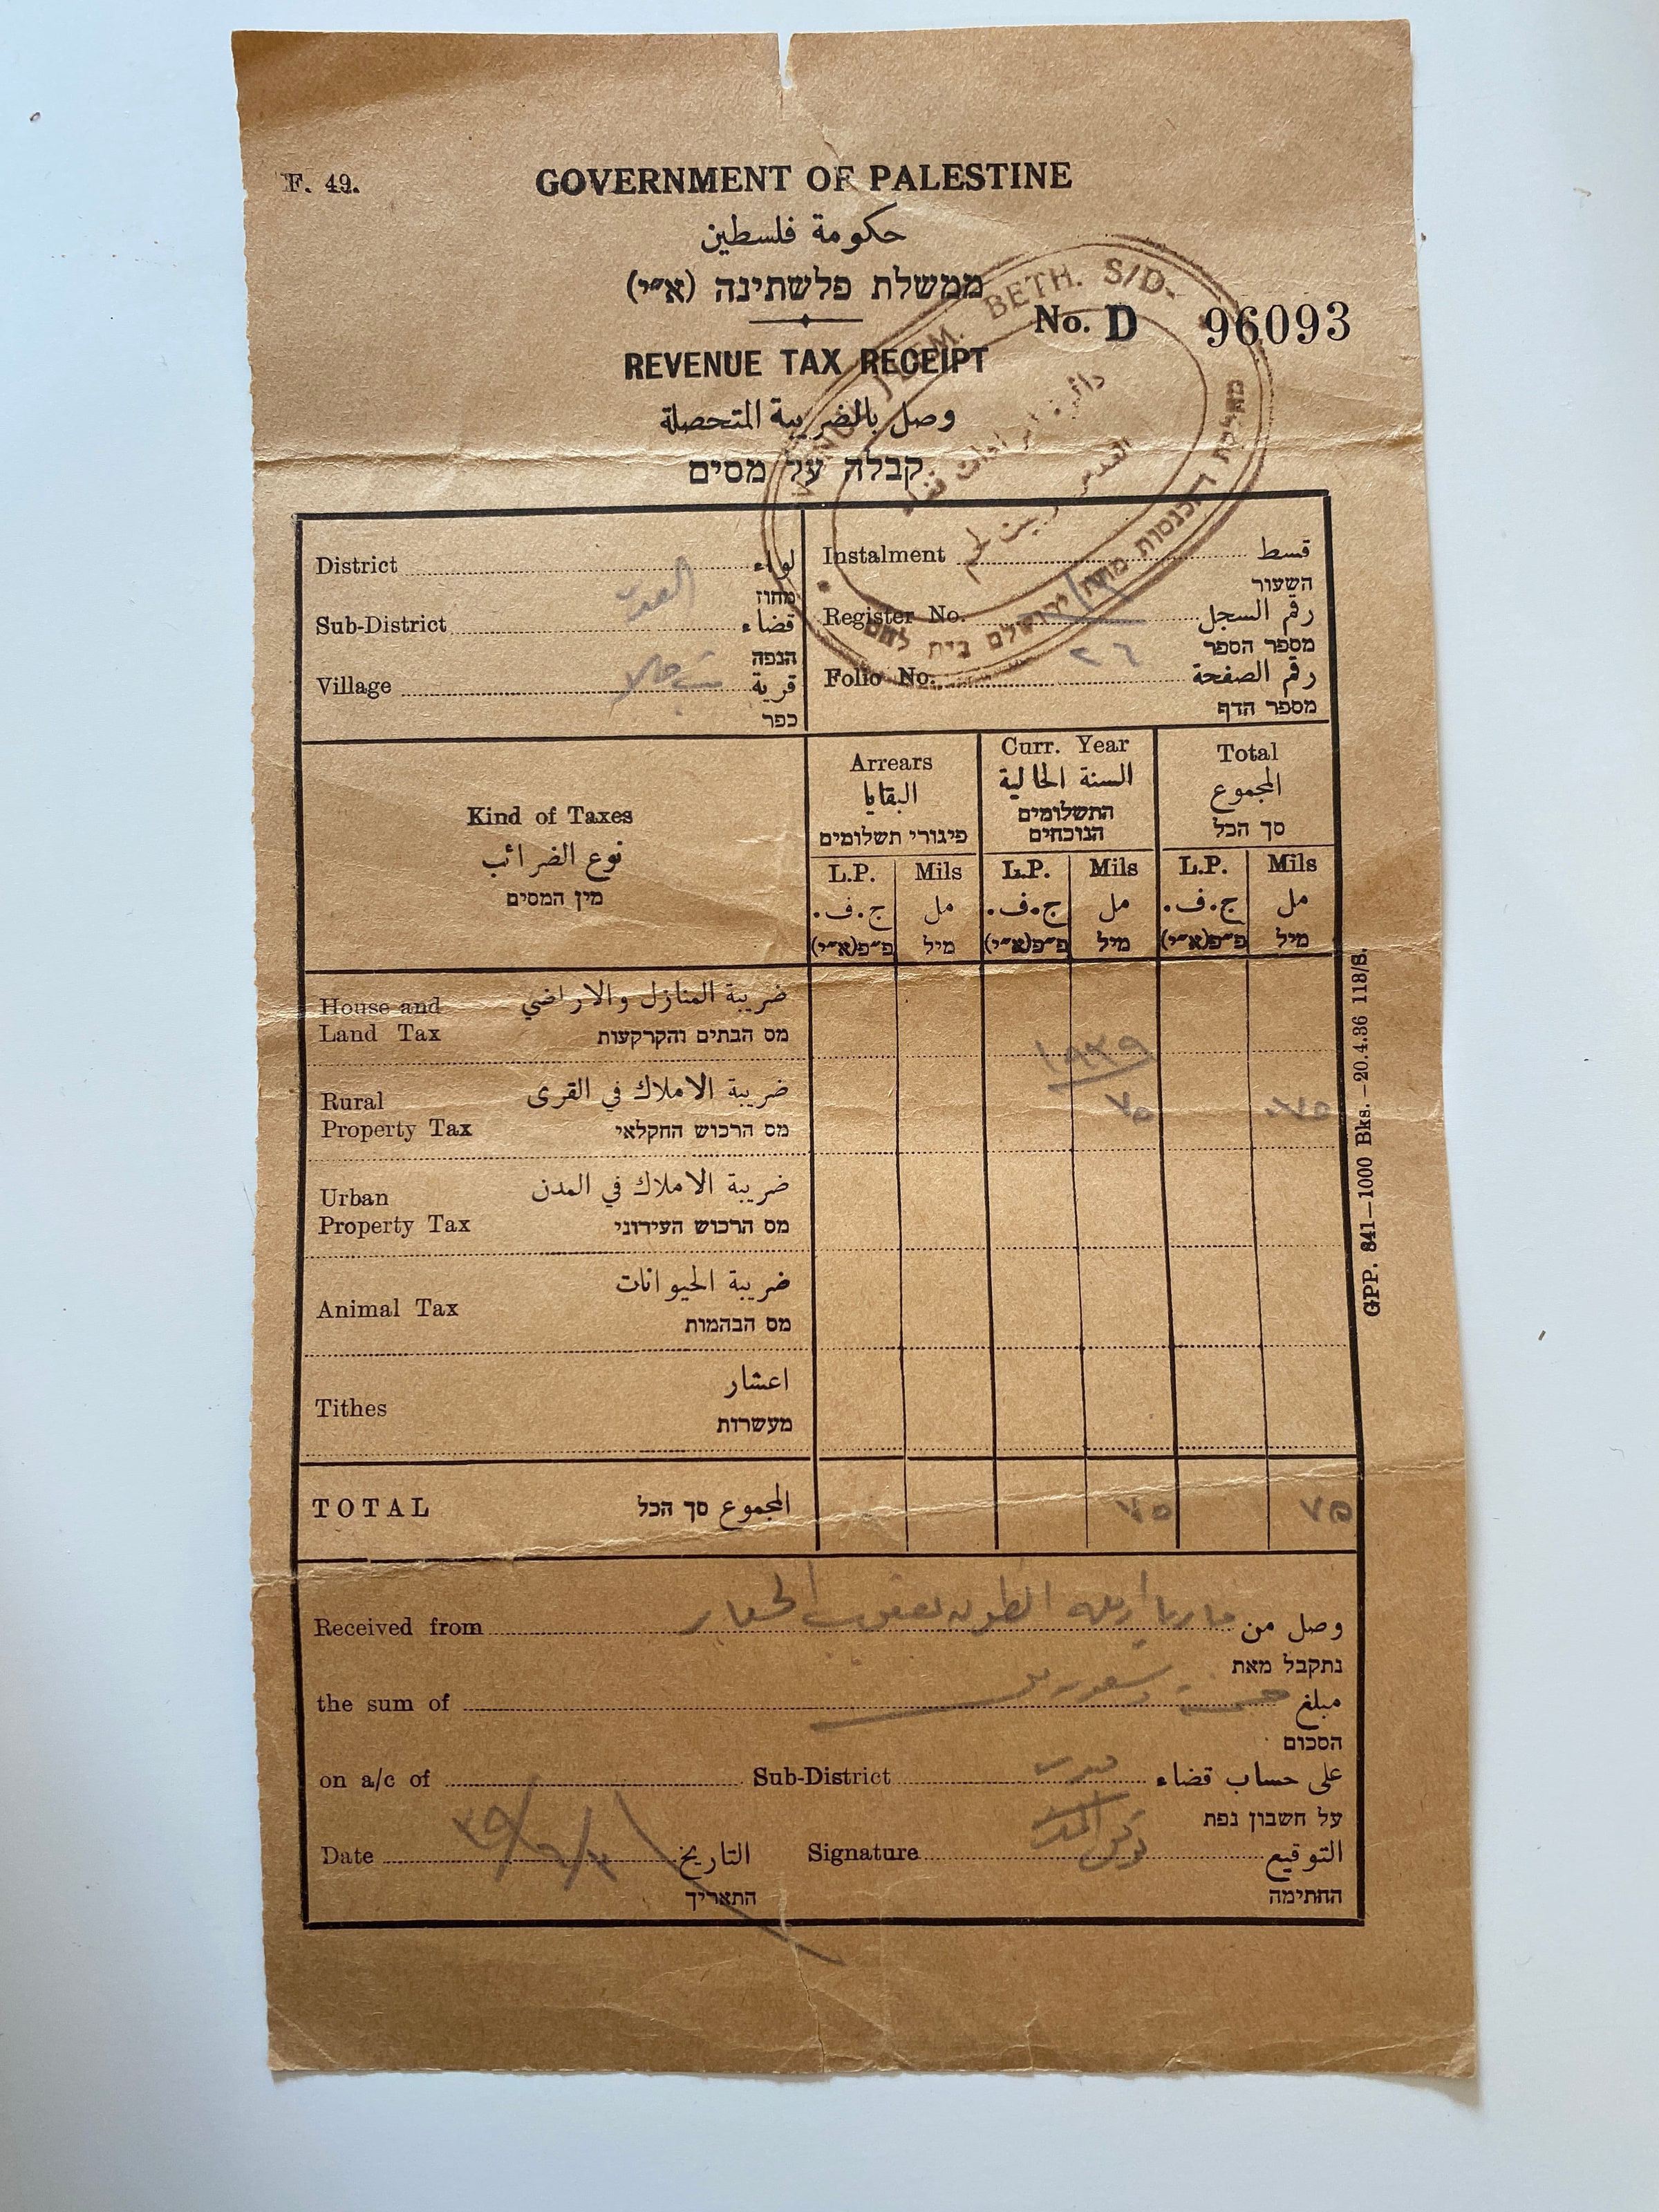 F. 49.
GOVERNMENT OF PALESTINE
حكومة فلسطين
ממשלת פלשתינה (א״י)
No. D 96093
REVENUE TAX RECEIPT
وصل بالضريبة المتحصلة
קבלה על מסים
REVENUE JLEM. BETH. S/D.
القدس وبيت لحم
ירושלם בית לחם
District لواء
מחוז
القدس
Sub-District قضاء
הנפה
Village بيت جالا قرية
כפר
Instalment قسط
השעור
Register No. رقم السجل
מספר הספר
Folio No. ٢٦ رقم الصفحة
מספר הדף
Kind of Taxes
نوع الضرائب
מין המסים
Arrears
البقايا
פיגורי תשלומים
Curr. Year
السنة الحالية
התשלומים
הנוכחים
Total
المجموع
סך הכל
L.P. Mils L.P. Mils L.P. Mils
ج.ف. مل ج.ف. مل ج.ف. مل
פ״פ(א״י) מיל פ״פ(א״י) מיל פ״פ(א״י) מיל
House and ضريبة المنازل والاراضي
Land Tax מס הבתים והקרקעות
١٩٣٩
Rural ضريبة الاملاك في القرى
Property Tax מס הרכוש החקלאי
٧٥ ٠٧٥
Urban ضريبة الاملاك في المدن
Property Tax מס הרכוש העירוני
Animal Tax ضريبة الحيوانات
מס הבהמות
Tithes اعشار
מעשרות
TOTAL המجموع סך הכל ٧٥ ٧٥
Received from ماريا ارملة انطون يعقوب وصل من
נתקבל מאת
the sum of خمسة وسبعون مل مبلغ
הסכום
on a/c of Sub-District على حساب قضاء
על חשבון נפת
Date التاريخ Signature التوقيع
התאריך החתימה
GPP. 841—1000 Bks.—20.4.36 118/S.